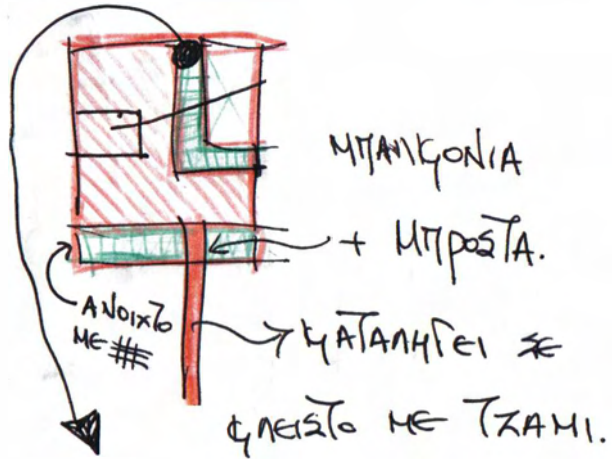 ΜΠΑΛΚΟΝΙΑ
+ ΜΠΡΟΣΤΑ.
ΑΝΟΙΧΤΟ
ΜΕ #
ΚΑΤΑΛΗΓΕΙ ΣΕ
ΚΛΕΙΣΤΟ ΜΕ ΤΖΑΜΙ.